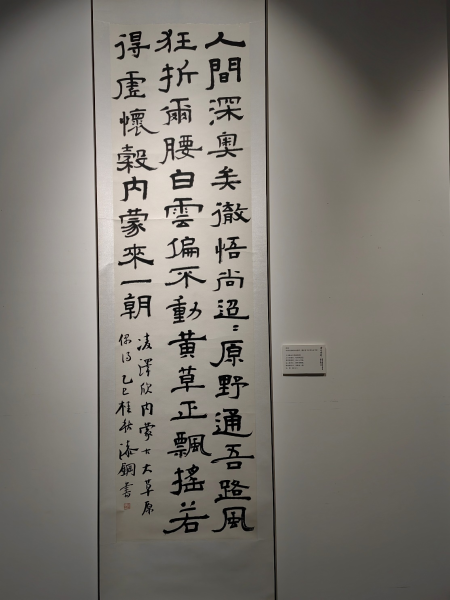 人間深奧矣徹悟尚迢〻原野通吾路風
狂折爾腰白雲偏不動黃草正飄搖若
得虛懷穀内蒙來一朝
凌澤欣内蒙古大草原
乙巳桂秋
書